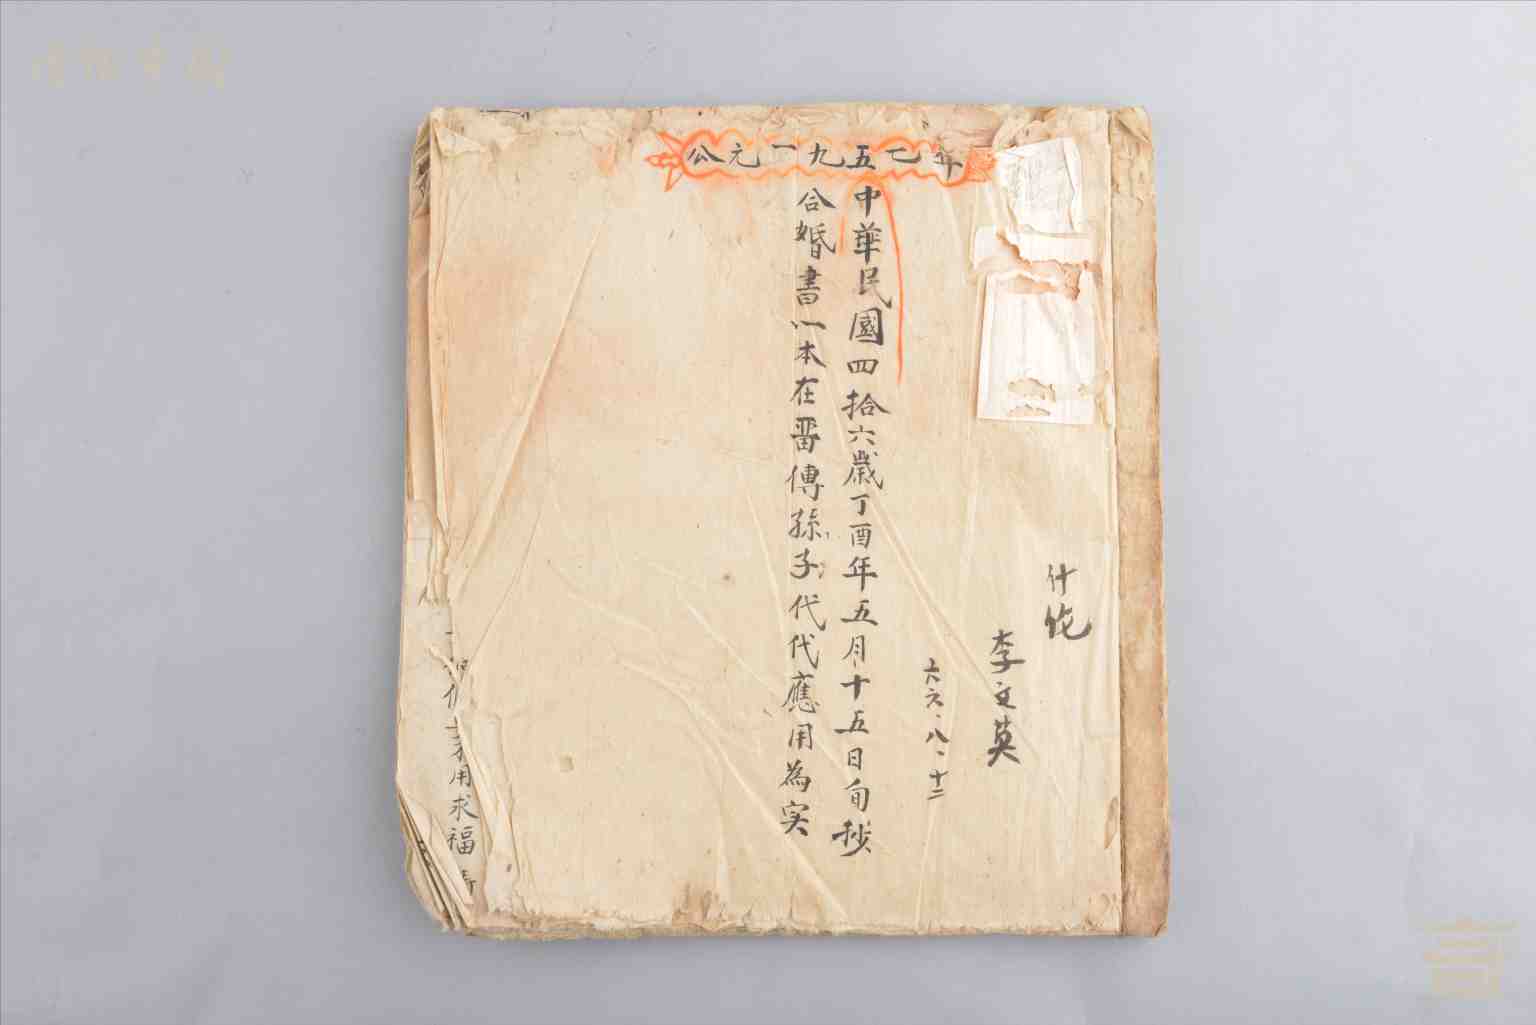 公元一九五七年
什佗
李文英
六六、八、十二
中華民國四拾六歲丁酉年五月十五日旬抄
合婚書一本在畨傳孫子代代應用為实
用求福